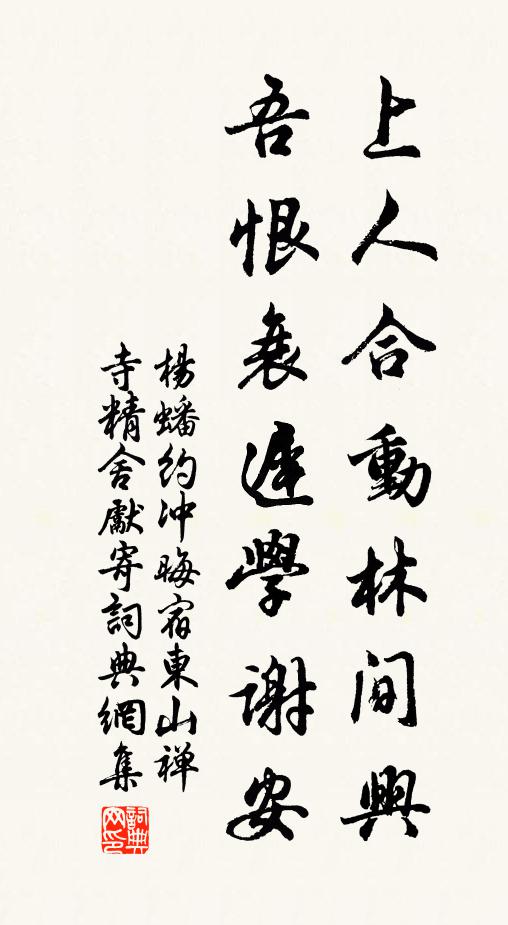 上人合動林間興
吾恨衰遲學谢安
楊蟠約冲晦宿東山禅
寺精舍獻寄詞典網集
詞典
网印